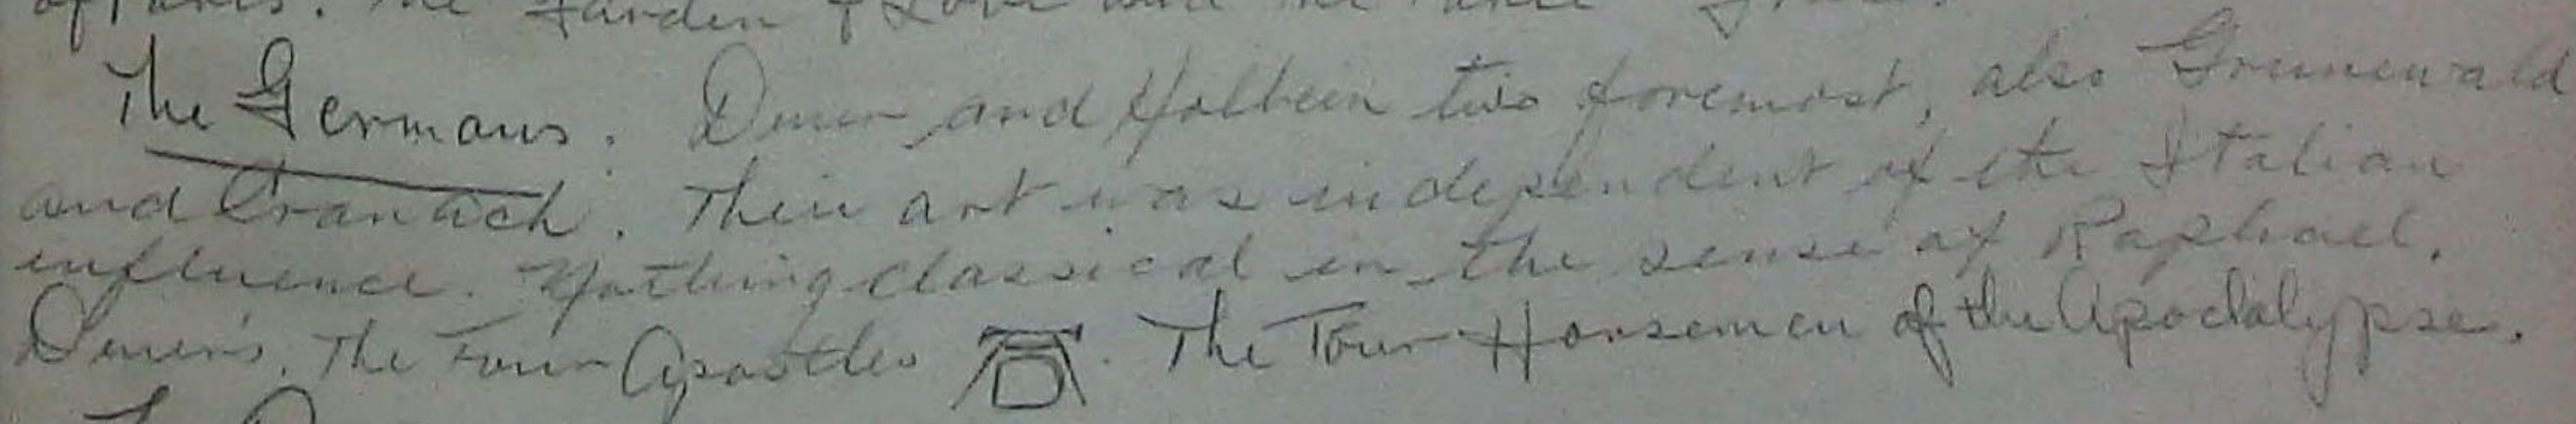 The Garden of Love and the
The Germans. Durer and Holbein two foremost, also Grunewald
and Cranach. Their art was independent of the Italian
influence. Nothing classical in the sense of Raphael.
Durer's. The Four Apostles. The Four Horsemen of the Apoclalypse.